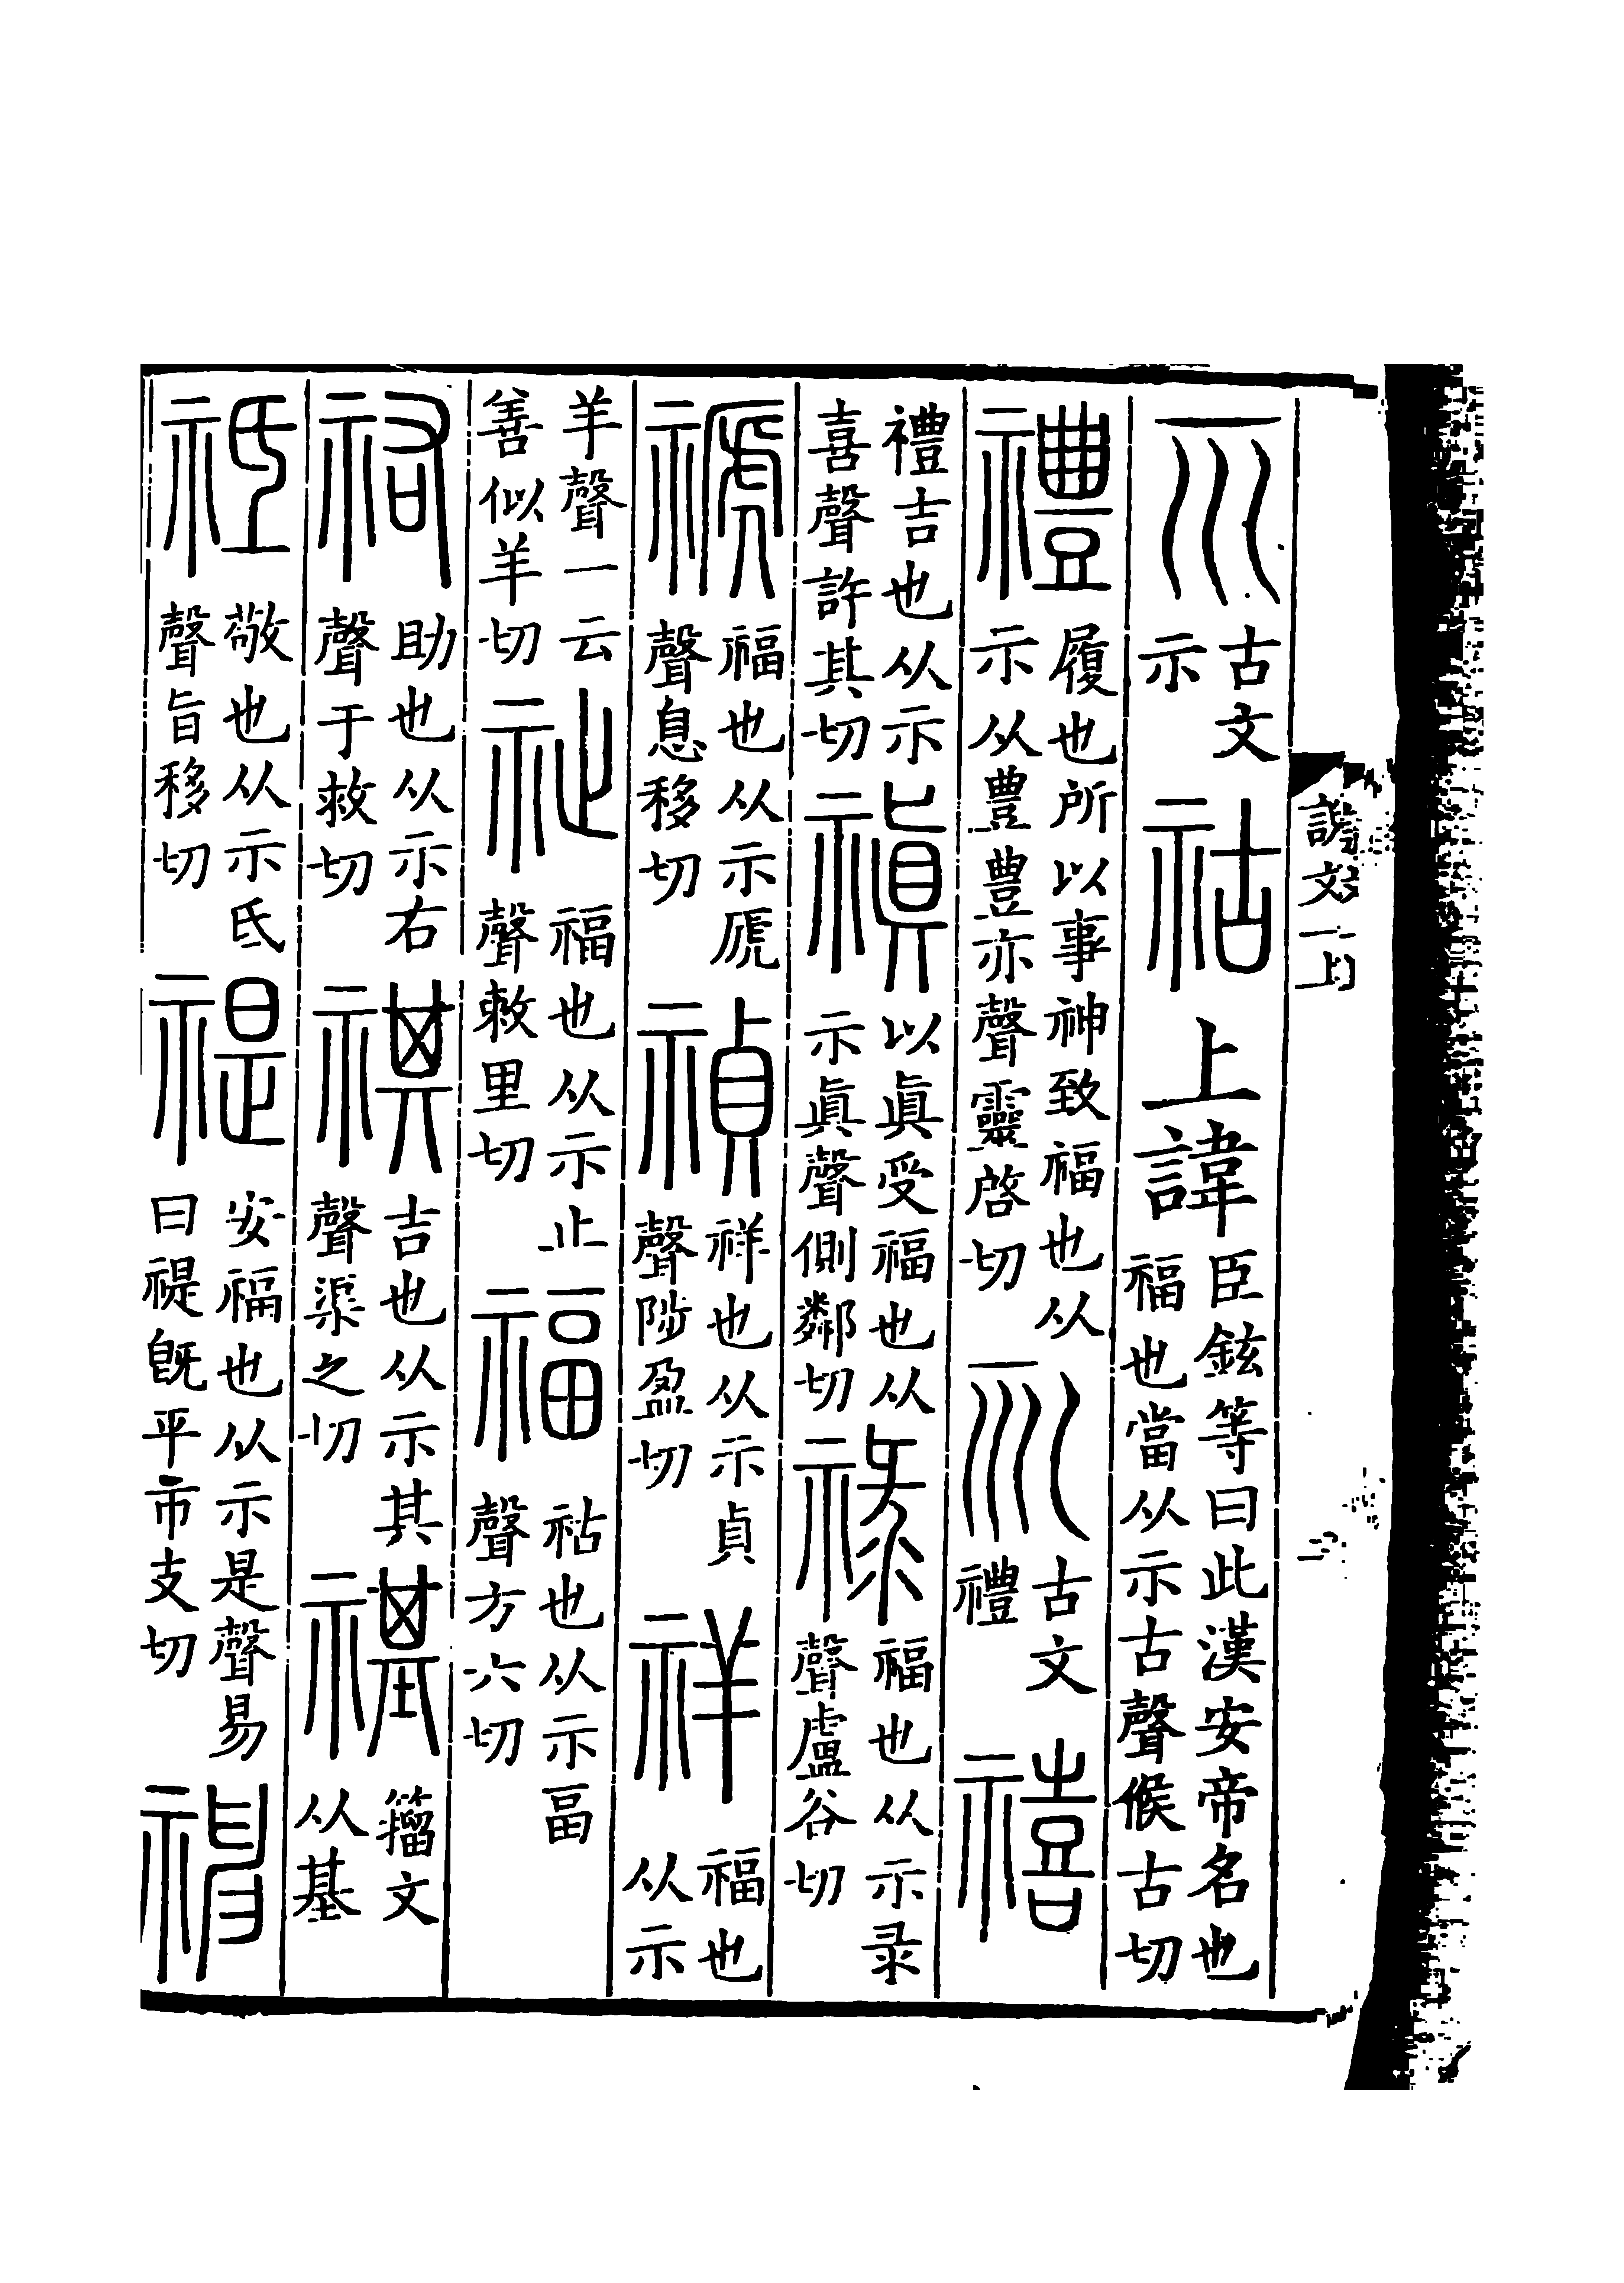 說文一上
𥘅古文示祜上諱臣鉉等曰此漢安帝名也福也當从示古聲候古切
禮履也所以事神致福也从示从豊豊亦聲靈啓切𠃞古文禮禧
禮吉也从示喜聲許其切禛以眞受福也从示眞聲側鄰切祿福也从示录聲盧谷切
禠福也从示虒聲息移切禎祥也从示貞聲陟盈切祥福也从示
羊聲一云善似羊切祉福也从示止聲敕里切福祜也从示畐聲方六切
祐助也从示右聲于救切祺吉也从示其聲渠之切禥籒文从基
祗敬也从示氐聲旨移切禔安福也从示是聲易曰禔既平市支切神